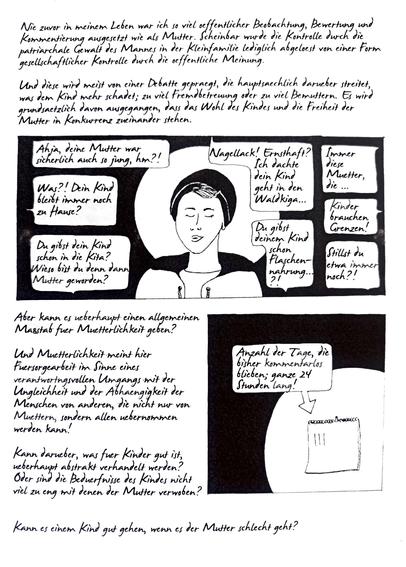 Nie zuvor in meinem Leben war ich so viel oeffentlicher Beobachtung, Bewertung und
Kommentierung ausgesetzt wie als Mutter. Scheinbar wurde die Kontrolle durch die
patriarchale Gewalt des Mannes in der Kleinfamilie lediglich abgeloest von einer Form
gesellschaftlicher Kontrolle durch die oeffentliche Meinung.
Und diese wird meist von einer Debatte gepraegt, die hauptsaechlich darueber streitet,
was dem Kind mehr schadet; zu viel Fremdbetreuung oder zu viel Bemuttern. Es wird
grundsaetzlich davon ausgegangen, dass das Wohl des Kindes und die Freiheit der
Mutter in Konkurrenz zueinander stehen.
Ahja, deine Mutter war
sicherlich auch so jung, hm?!
Was?! Dein Kind
bleibt immer noch
zu Hause?
Du gibst dein Kind
schon in die Kita?
Wieso bist du denn dann
Mutter geworden?
Nagellack! Ernsthaft?
Ich dachte
dein Kind
geht in den
Waldkiga...
Du gibst
deinem Kind
schon
Flaschen-
nahrung...
?!
Immer
diese
Muetter,
die ...
Kinder
brauchen
Grenzen!
Stillst du
etwa immer
noch?!
Aber kann es ueberhaupt einen allgemeinen
Maßstab fuer Muetterlichkeit geben?
Und Muetterlichkeit meint hier
Fuersorgearbeit im Sinne eines
verantwortngsvollen Umgangs mit der
Ungleichheit und der Abhaengigkeit der
Menschen von anderen, die nicht nur von
Muettern, sondern allen uebernommen
werden kann!
Kann darueber, was fuer Kinder gut ist,
ueberhaupt abstrakt verhandelt werden?
Oder sind die Beduerfnisse des Kindes nicht
viel zu eng mit denen der Mutter verwoben?
Anzahl der Tage, die
bisher kommentarlos
blieben; ganze 24
Stunden lang!
Kann es einem Kind gut gehen, wenn es der Mutter schlecht geht?